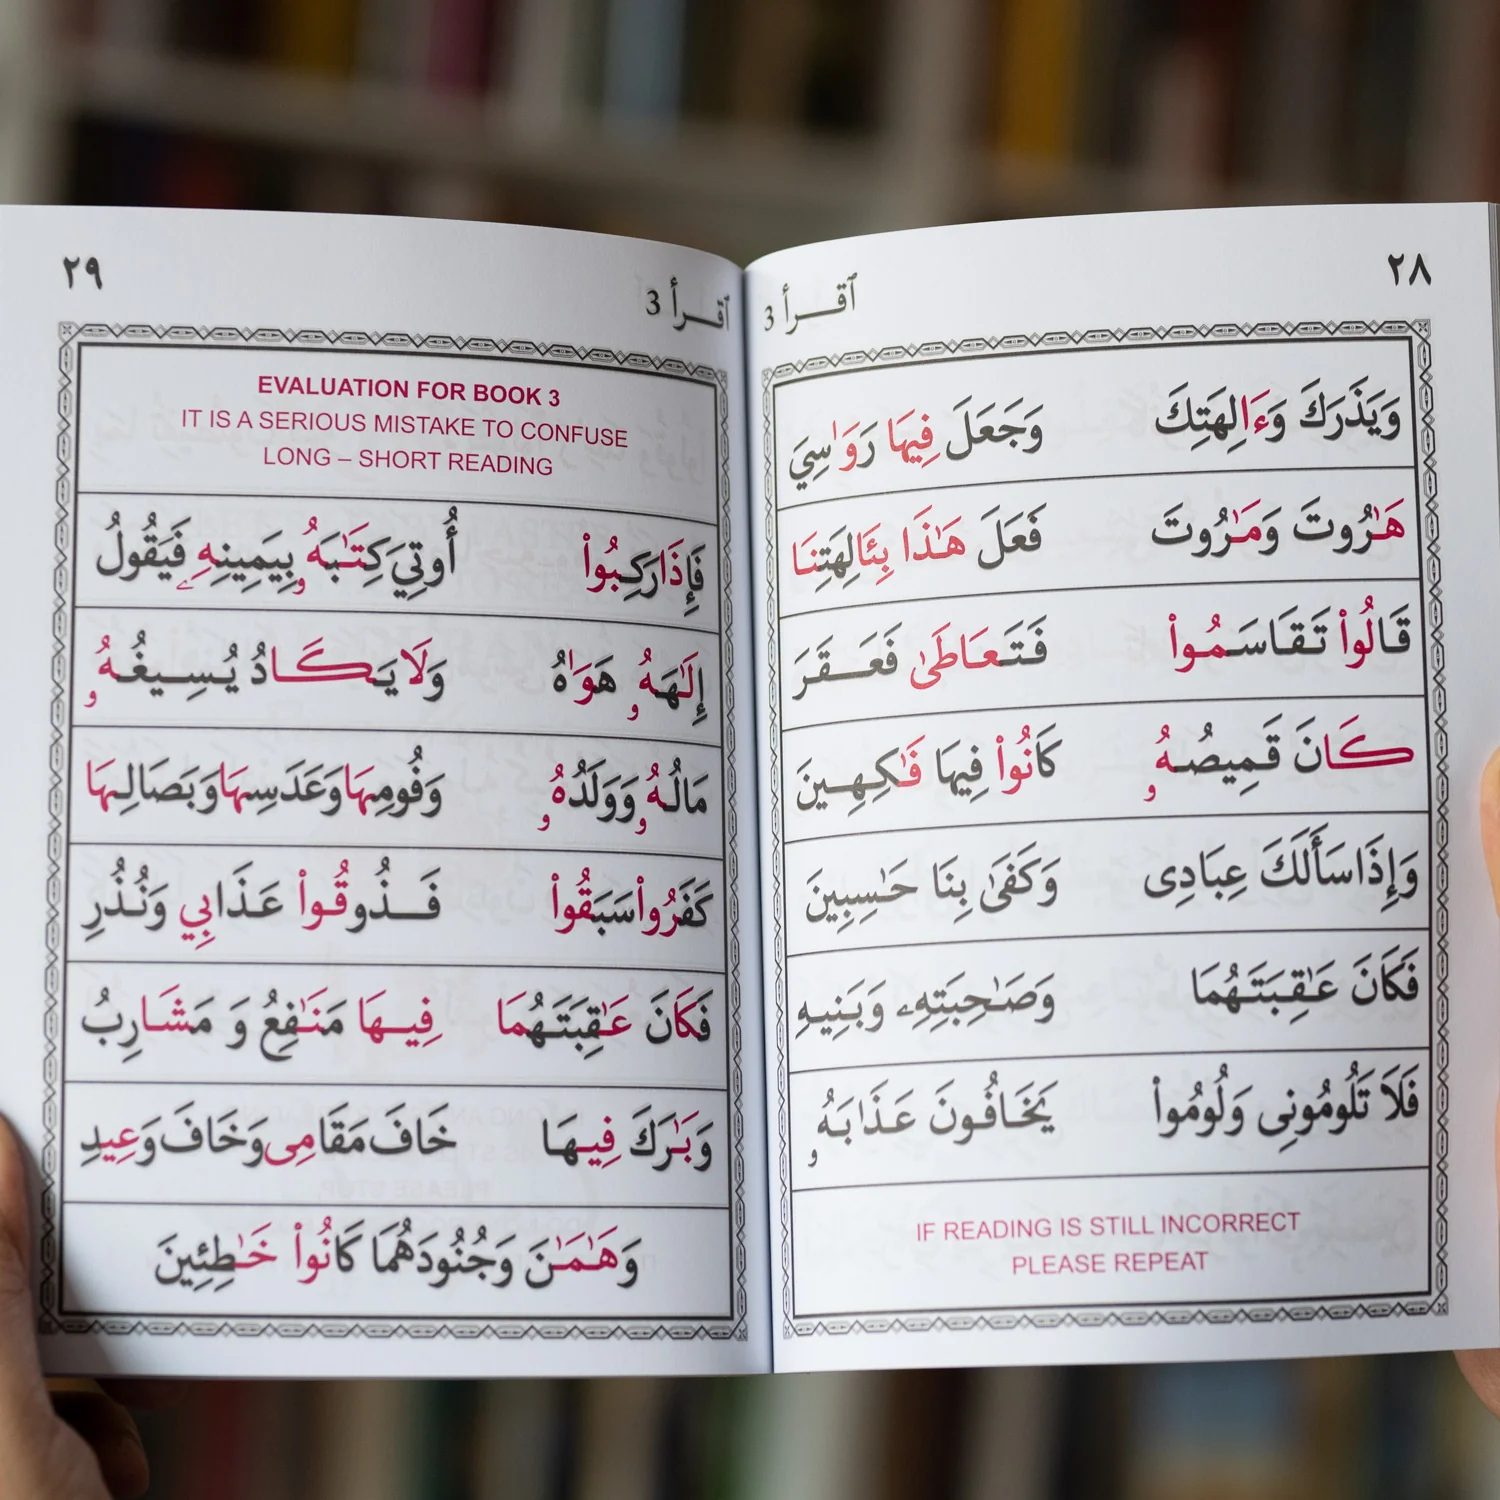 ٢٨
ٱقـــرأ 3
وَيَذَرَكَ وَءَالِهَتِكَ وَجَعَلَ فِيهَا رَوَٰسِيَ
هَٰرُوتَ وَمَٰرُوتَ فَعَلَ هَٰذَا بِـَٔالِهَتِنَا
قَالُوا۟ تَقَاسَمُوا۟ فَتَعَاطَىٰ فَعَـــقَرَ
كَانَ قَمِيصُـهُۥ كَانُوا۟ فِيهَا فَٰكِهِـينَ
وَإِذَاسَأَلَكَ عِبَادِى وَكَفَىٰ بِنَا حَٰسِبِينَ
فَكَانَ عَٰقِبَتَـهُمَا وَصَٰحِبَتِهِۦ وَبَنِيهِ
فَلَا تَلُومُونِى وَلُومُوا۟ يَخَافُونَ عَذَابَهُۥ
IF READING IS STILL INCORRECT
PLEASE REPEAT
٢٩
ٱقـــرأ 3
EVALUATION FOR BOOK 3
IT IS A SERIOUS MISTAKE TO CONFUSE
LONG – SHORT READING
فَإِذَارَكِبُوا۟ أُوتِيَ كِتَٰبَهُۥ بِيَمِينِهِۦ فَيَقُولُ
إِلَٰهَهُۥ هَوَىٰهُ وَلَا يَـكَــادُ يُـسِـيغُـهُۥ
مَالُهُۥ وَوَلَدُهُۥ وَفُومِهَاوَعَدَسِهَاوَبَصَالِـهَا
كَفَرُوا۟سَبَقُوا۟ فَـــذُوقُـوا۟ عَـذَابِي وَنُذُرِ
فَكَانَ عَٰقِبَتَـهُمَا فِيـهَا مَنَٰفِعُ وَ مَشَـارِبُ
وَبَٰرَكَ فِيـهَا خَافَ مَقَامِى وَخَافَ وَعِيدِ
وَهَٰمَٰنَ وَجُنُودَهُمَا كَانُوا۟ خَٰطِئِينَ